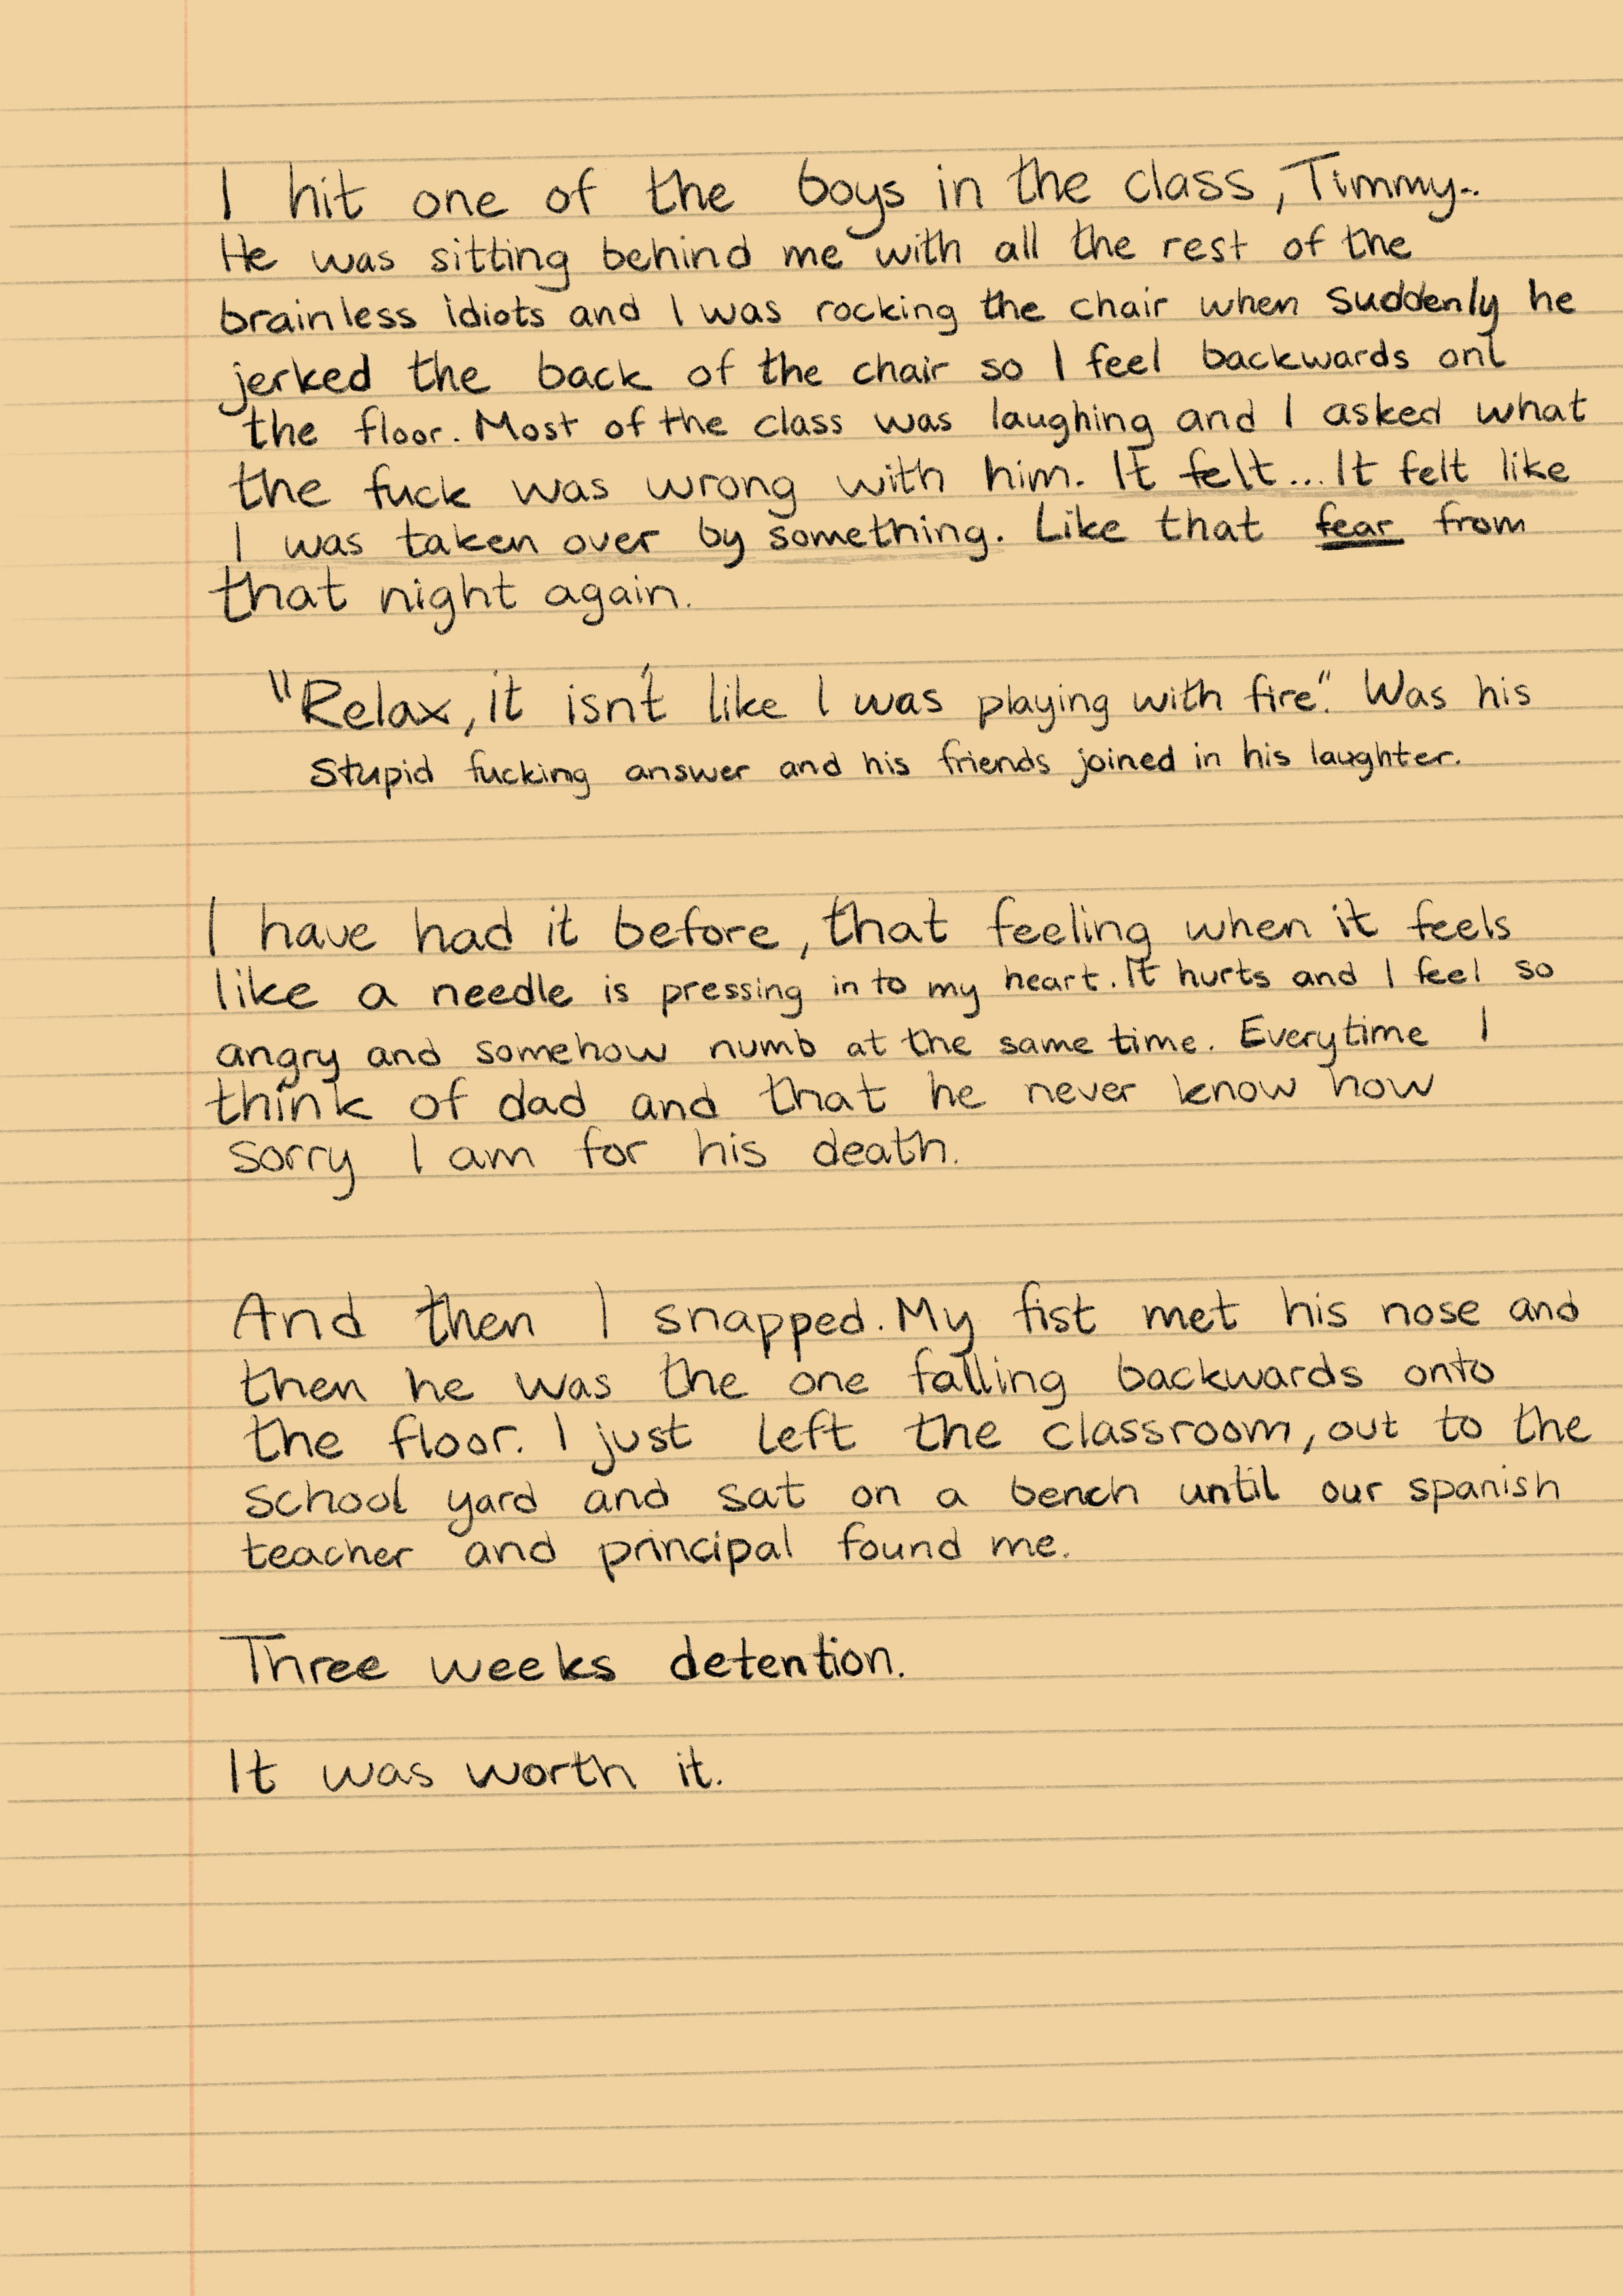 I hit one of the boys in the class, Timmy..
He was sitting behind me with all the rest of the
brainless idiots and I was rocking the chair when suddenly he
jerked the back of the chair so I feel backwards ont
the floor. Most of the class was laughing and I asked what
the fuck was wrong with him. It felt... It felt like
I was taken over by something. Like that fear from
that night again.
"Relax, it isn't like I was playing with fire". Was his
Stupid fucking answer and his friends joined in his laughter.
I have had it before, that feeling when it feels
like a needle is pressing in to my heart. It hurts and I feel so
angry and somehow numb at the same time. Everytime I
think of dad and that he never know how
sorry I am for his death.
And then I snapped. My fist met his nose and
then he was the one falling backwards onto
the floor. I just left the classroom, out to the
school yard and sat on a bench until our spanish
teacher and principal found me.
Three weeks detention.
It was worth it.